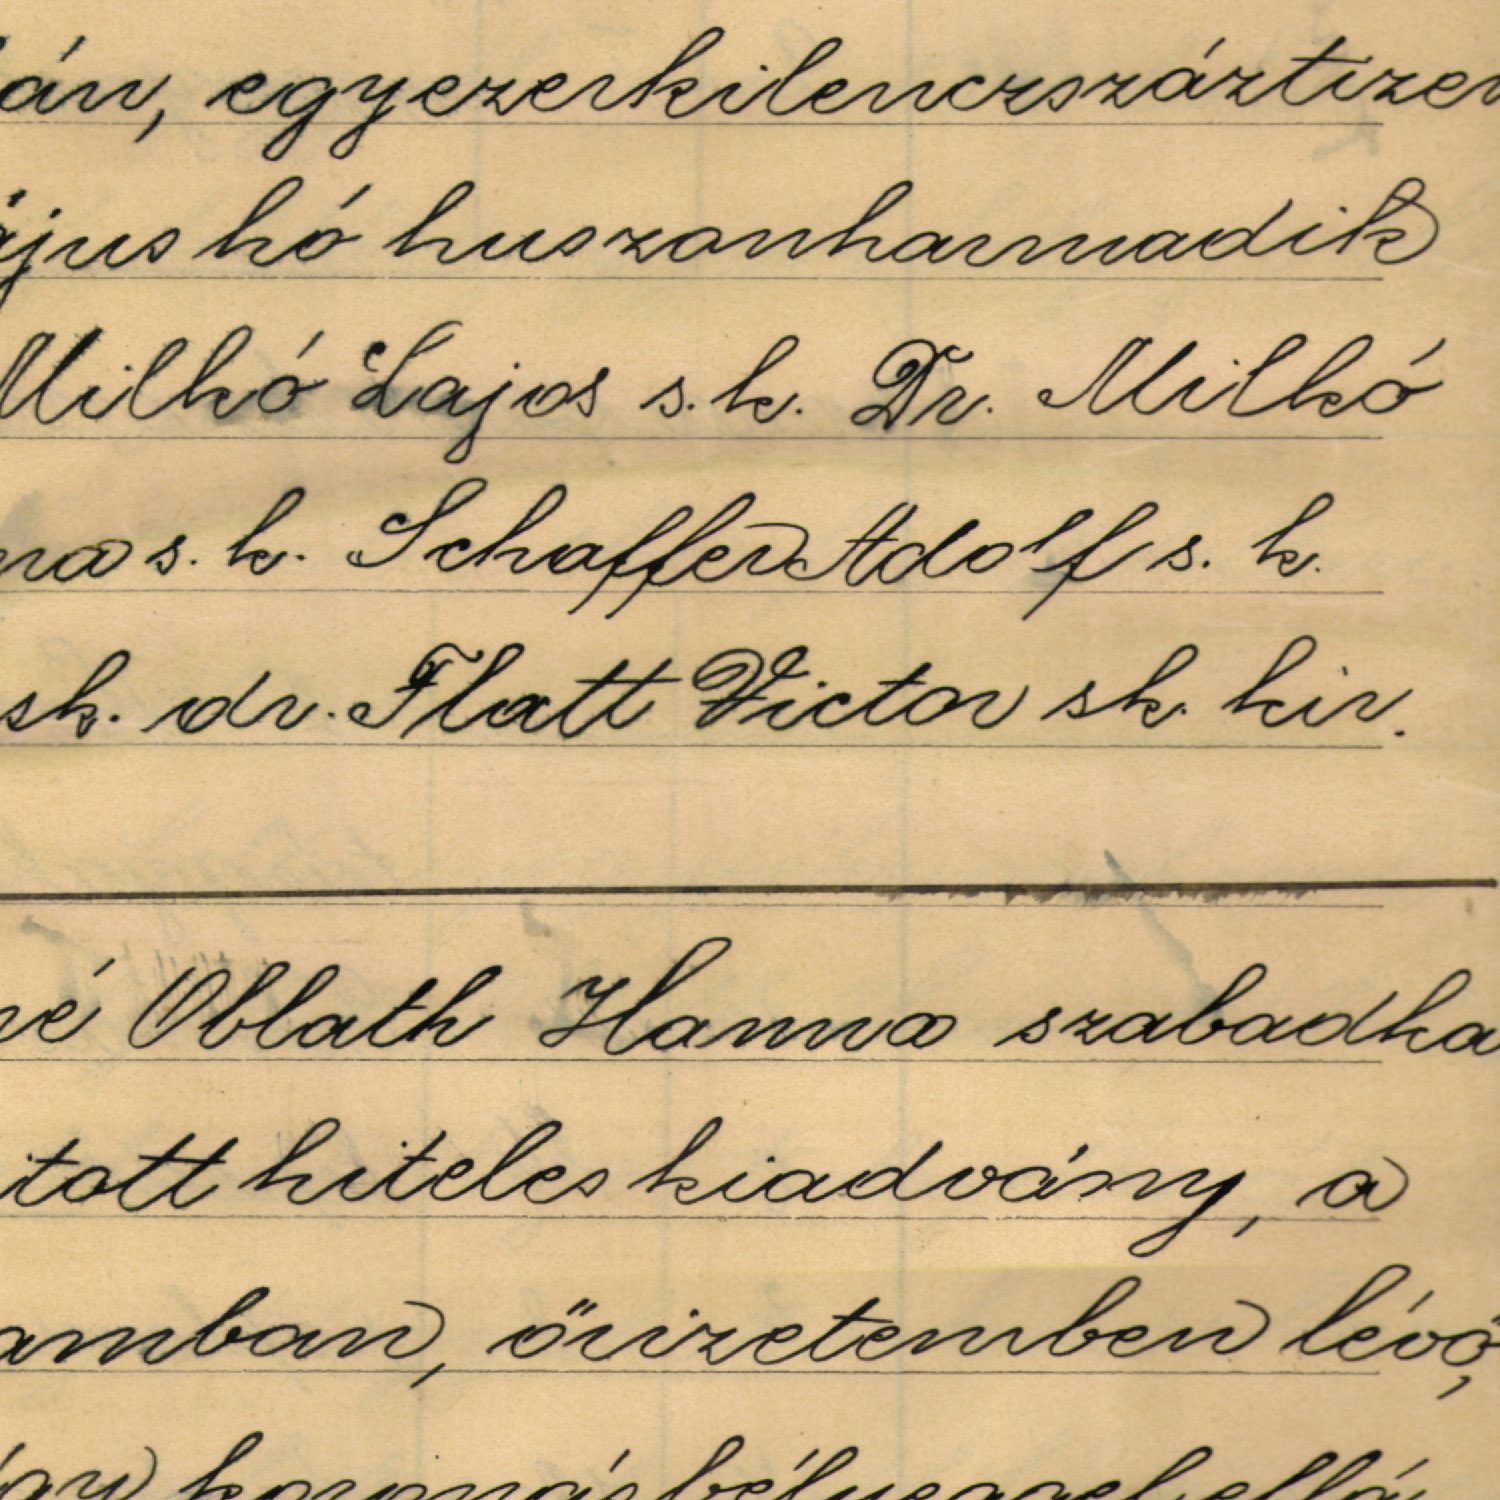 án, egyezerkilenczszáztizen
ájus hó huszonharmadik
Milkó Lajos s. k. Dr. Milkó
na s. k. Schaffer Adolf s. k.
sk. dr. Flatt Victor sk. kir.
né Oblath Hanna szabadka
itott hiteles kiadvány, a
amban, őrizetemben lévő,
koronás bélyeggel ellá